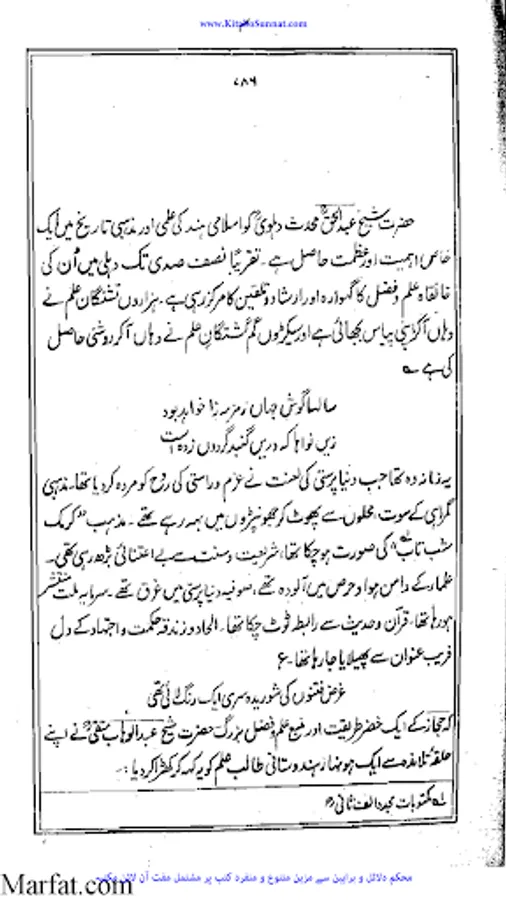 www.KitaboSunnat.com
۷۸۶
حضرت شیخ عبدالحقؒ محدث دہلویؒ کو اسلامی ہند کی علمی اور مذہبی تاریخ میں ایک
خاص اہمیت اور عظمت حاصل ہے۔ تقریباً نصف صدی تک دہلی میں اُن کی
خانقاہ علم و فضل کا گہوارہ اور ارشاد و تلقین کا مرکز رہی ہے۔ ہزاروں تشنگانِ علم نے
وہاں آکر اپنی پیاس بجھائی ہے اور سیکڑوں گم گشتگانِ علم نے وہاں آکر روشنی حاصل
کی ہے ؎
سالہا گوش جہاں زمزمہ زا خواہد بود
زیں نواہا کہ دریں گنبد گردوں زدہ است
یہ زمانہ وہ تھا جب دنیا پرستی کی لعنت نے عزم و راستی کی روح کو مردہ کر دیا تھا۔ مذہبی
گمراہی کے سوت، محلوں سے پھوٹ کر جھونپڑوں میں بہہ رہے تھے۔ مذہب "کرمک
شب تاب" کی صورت ہو چکا تھا، شریعت و سنت سے بے اعتنائی بڑھ رہی تھی۔
علماء کے دامن ہوا و حرص میں آلودہ تھے، صوفیہ دنیا پرستی میں غرق تھے۔ سرمایہ ملت منتشر
ہو رہا تھا۔ قرآن و حدیث سے رابطہ ٹوٹ چکا تھا۔ الحاد و زندقہ حکمت و اجتہاد کے دل
فریب عنوان سے پھیلایا جا رہا تھا۔ ؏
غرض فتنوں کی شوریدہ سری ایک رنگ لائی تھی
کہ حجاز کے ایک خضر طریقت اور منبع علم و فضل بزرگ حضرت شیخ عبدالوہاب متقیؒ نے اپنے
حلقۂ تلامذہ سے ایک ہونہار ہندوستانی طالب علم کو یہ کہہ کر کھڑا کر دیا :-
لہ مکتوبات مجدد الف ثانیؒ
محکم دلائل و براہین سے مزین متنوع و منفرد کتب پر مشتمل مفت آن لائن مکتبہ
Marfat.com